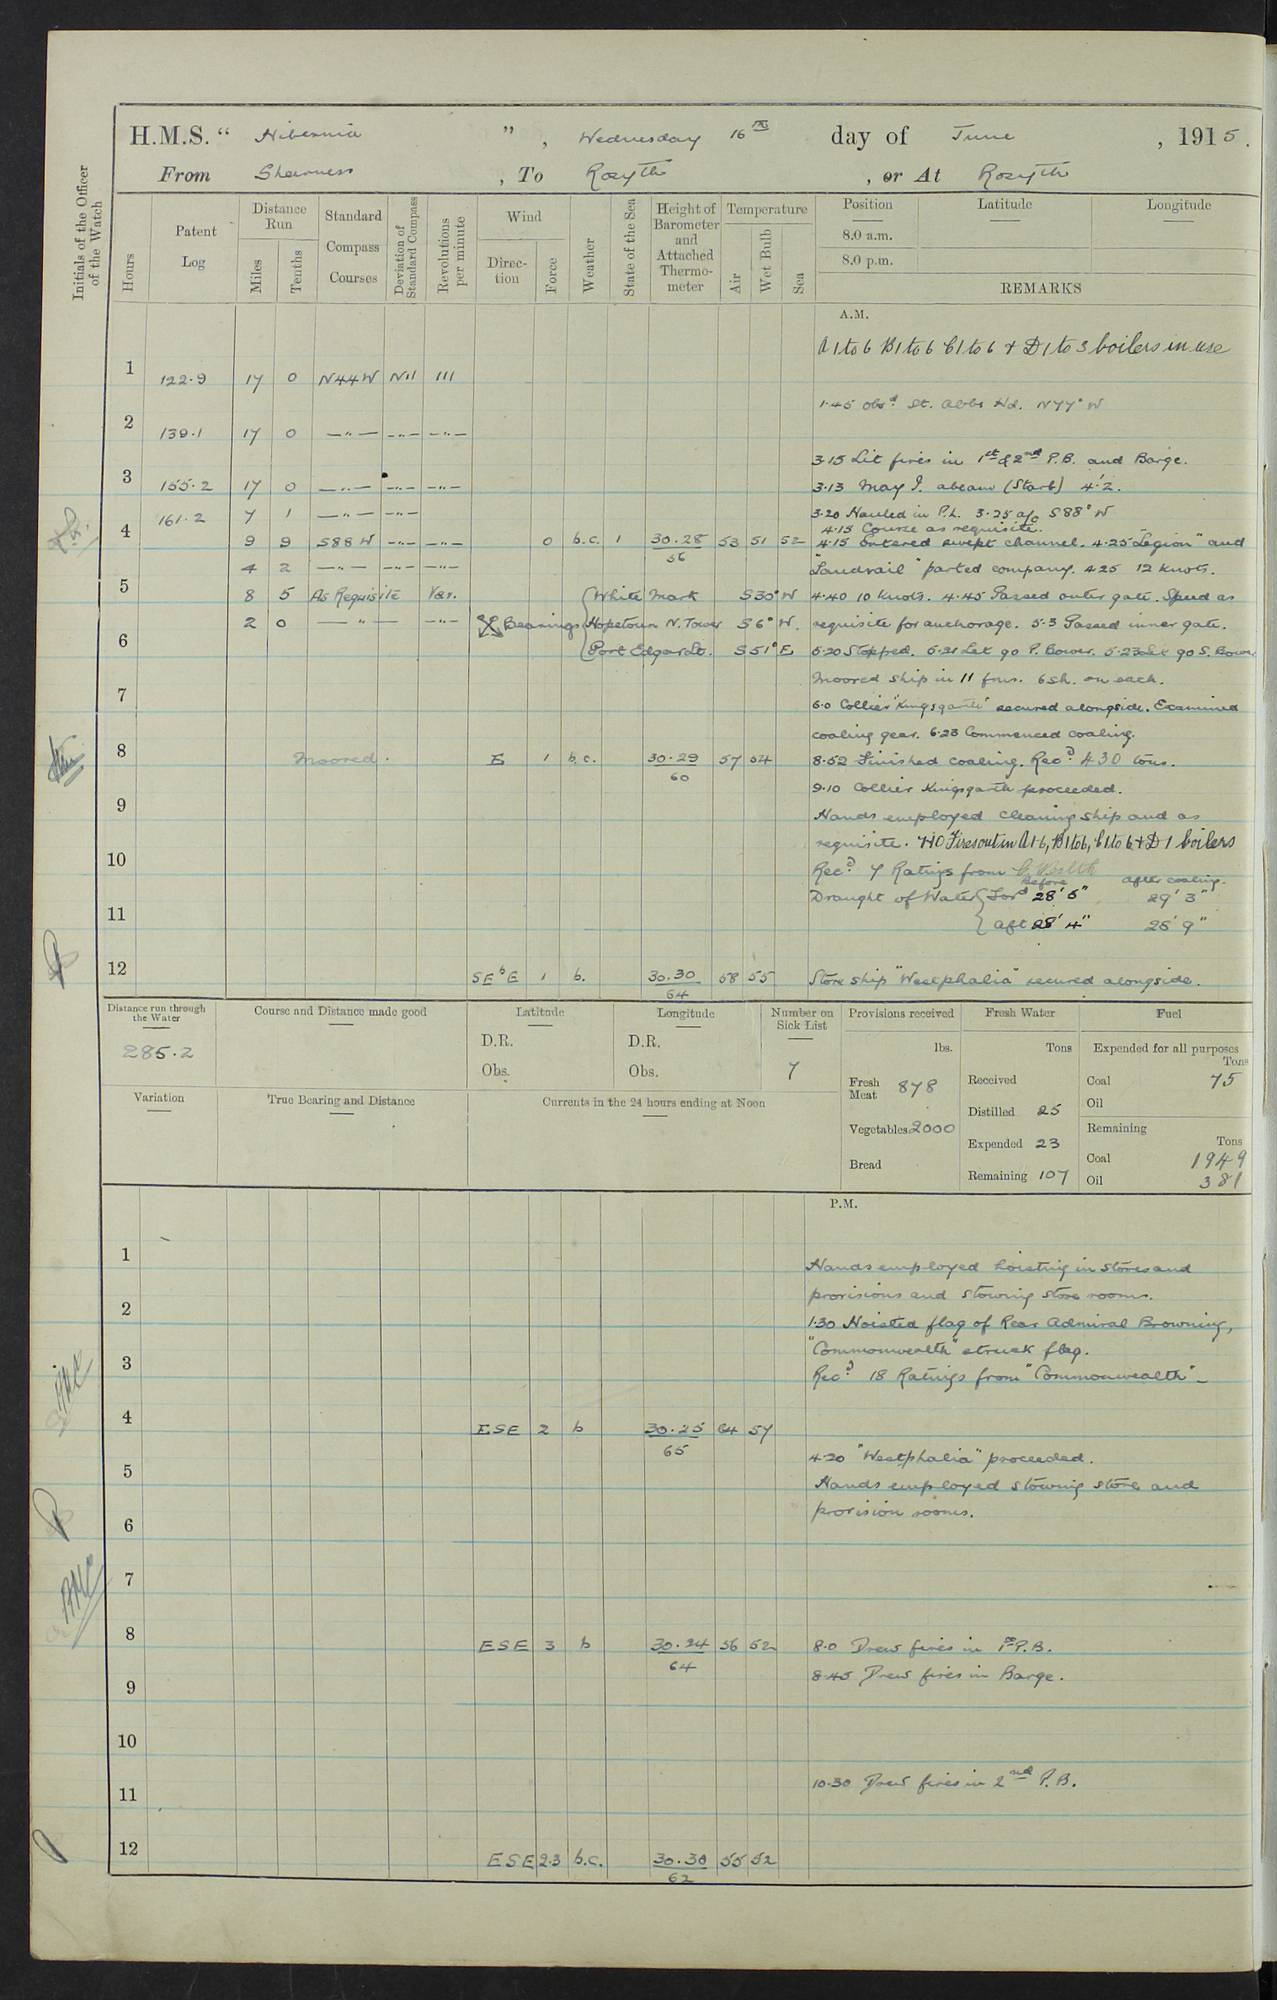 H.M.S. " Hibernia ", Wednesday 16th day of June, 1915.
From Sheerness, To Rosyth, or At Rosyth
Initials of the Officer of the Watch
Hours
Patent Log
Distance Run
Miles
Tenths
Standard Compass Courses
Deviation of Standard Compass
Revolutions per minute
Wind
Direction
Force
Weather
State of the Sea
Height of Barometer and Attached Thermometer
Temperature
Air
Wet Bulb
Sea
Position
Latitude
Longitude
8.0 a.m.
8.0 p.m.
REMARKS
A.M.
A 1 to 6 B 1 to 6 C 1 to 6 & D 1 to 3 boilers in use
1 122.9 17 0 N44W Nil 111
1.45 Obsd. St. Abbs Hd. N77°W
2 139.1 17 0 —"— —"— —"—
3.15 Lit fires in 1st & 2nd P.B. and Barge.
3 155.2 17 0 —"— —"— —"—
3.13 May I. abeam (Starb) 4'.2.
161.2 7 1 —"— —"—
3.20 Hauled in P.L. 3.25 a/c S88°W
4.15 Course as requisite.
4 9 9 S88W —"— —"— 0 b.c. 1 30.28 53 51 52
56
4.15 Entered swept channel. 4.25 "Legion" and
4 2 —"— —"— —"—
"Landrail" parted company. 4.25 12 knots.
5 8 5 As Requisite Var.
White Mark S30°W
4.40 10 knots. 4.45 Passed outer gate. Speed as
2 0 —"— —"—
Bearings Hopetoun N. Tower S6°W.
requisite for anchorage. 5.3 Passed inner gate.
6
Port Edgar Lt. S51°E
5.20 Stopped. 5.21 Let go P. Bower. 5.23 Let go S. Bower
Moored ship in 11 fms. 6 sh. on each.
7
6.0 Collier "Kingsgarth" secured alongside. Examined
coaling gear. 6.23 Commenced coaling.
8 Moored. E 1 b.c. 30.29 57 54
60
8.52 Finished coaling. Recd. 430 tons.
9.10 Collier Kingsgarth proceeded.
9
Hands employed cleaning ship and as
requisite. Fires out in A1-6, B1 to 6, C1 to 6 & D1 boilers
10
Recd. 7 Ratings from
Before after coaling.
Draught of Water { Ford 28' 5" 29' 3"
11
{ aft 28' 4" 28' 9"
12 SEbE 1 b. 30.30 58 55
64
Store ship "Westphalia" secured alongside.
Distance run through the Water
285.2
Course and Distance made good
Latitude
D.R.
Obs.
Longitude
D.R.
Obs.
Number on Sick List
7
Provisions received
lbs.
Fresh Meat 878
Vegetables 2000
Bread
Fresh Water
Tons
Received
Distilled 25
Expended 23
Remaining 107
Fuel
Expended for all purposes
Tons
Coal 75
Oil
Remaining
Tons
Coal 1949
Oil 381
Variation
True Bearing and Distance
Currents in the 24 hours ending at Noon
P.M.
1
Hands employed hoisting in stores and
provisions and stowing store rooms.
2
1.30 Hoisted flag of Rear Admiral Browning,
"Commonwealth" struck flag.
3
Recd. 18 Ratings from "Commonwealth"
4 ESE 2 b 30.25 64 57
65
4.20 "Westphalia" proceeded.
5
Hands employed stowing store and
provision rooms.
6
7
8 ESE 3 b 30.24 56 52
64
8.0 Drew fires in 1st P.B.
8.45 Drew fires in Barge.
9
10
10.30 Drew fires in 2nd P.B.
11
12 ESE 2.3 b.c. 30.30 55 52
62